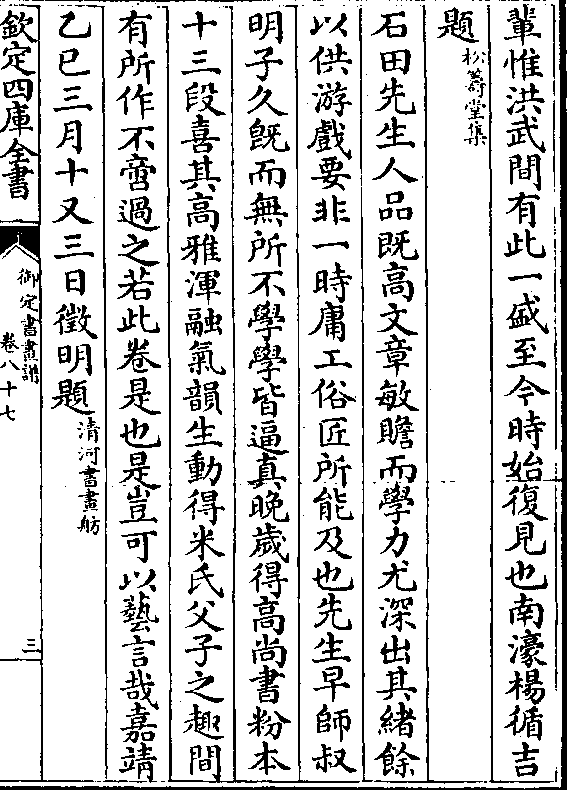 輩惟洪武間有此一盛至今時始復見也南濠楊循吉
題松籌堂集
石田先生人品既高文章敏贍而學力尤深出其緒餘
以供游戲要非一時庸工俗匠所能及也先生早師叔
明子久既而無所不學學皆逼真晚歲得高尚書粉本
十三段喜其高雅渾融氣韻生動得米氏父子之趣間
有所作不啻過之若此卷是也是豈可以藝言哉嘉靖
乙巳三月十又三日徵明題清河書畫舫
欽定四庫全書
御定書畫譜
卷八十七
三